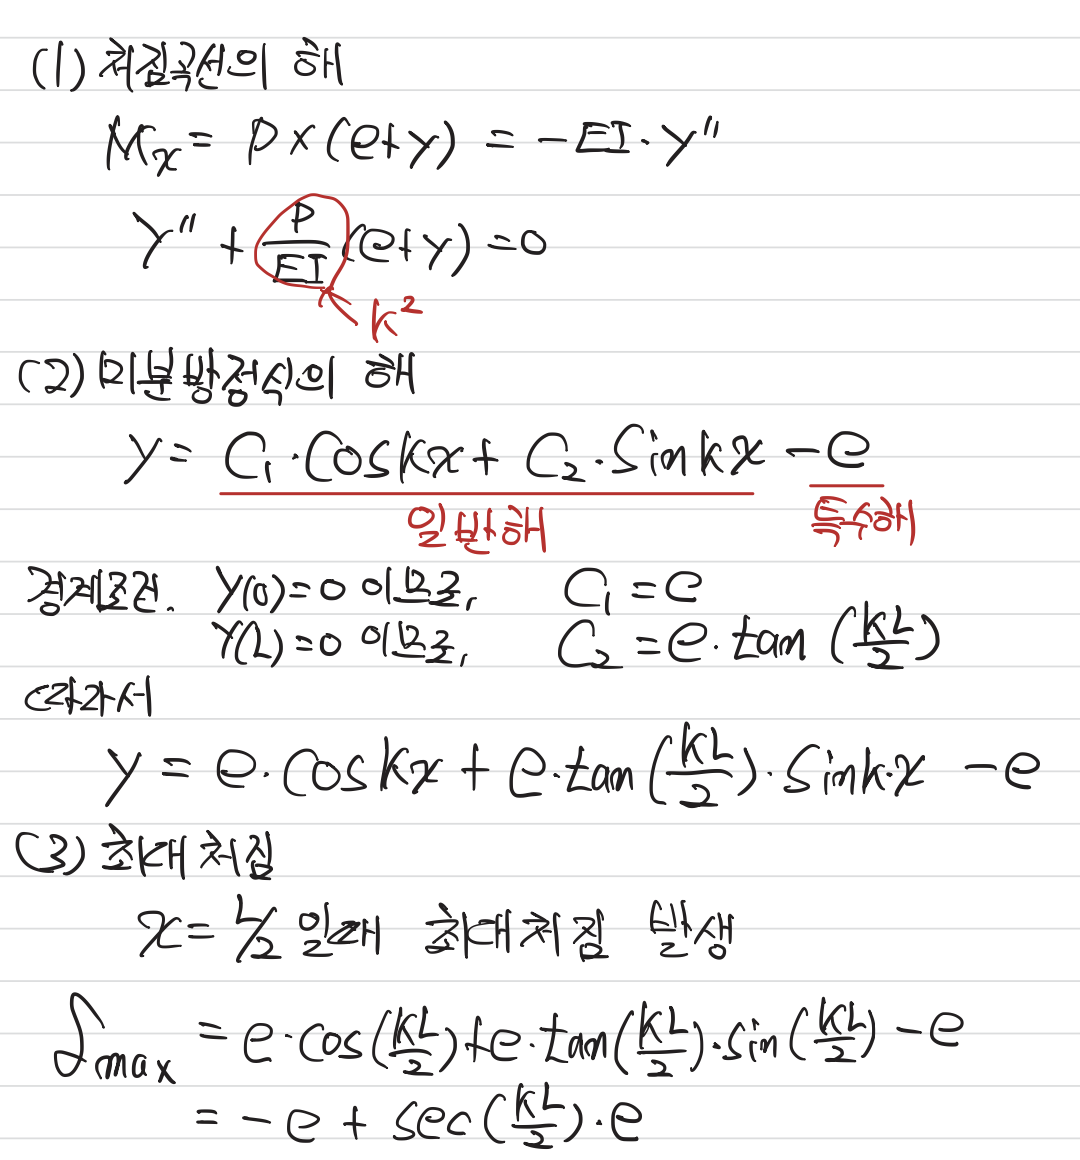 (1) 처짐곡선의 해
Mx = P×(e+y) = -EI·y''
y'' + P/EI (e+y) = 0
k²
(2) 미분방정식의 해
y = C₁·coskx + C₂·sinkx - e
일반해 특수해
경계조건. y(0)=0 이므로, C₁ = e
y(L)=0 이므로, C₂ = e·tan(kL/2)
따라서
y = e·coskx + e·tan(kL/2)·sink·x - e
(3) 최대처짐
x = L/2 일때 최대처짐 발생
δmax = e·cos(kL/2)+e·tan(kL/2)·sin(kL/2) - e
= -e + sec(kL/2)·e